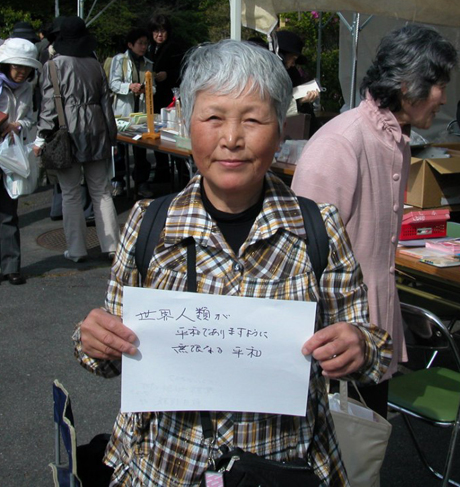 世界人類が
平和でありますように
無限なる平和